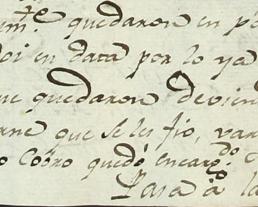 mte. quedaron en p
doi en data por lo ya
ue quedaron devien
rne que se les fio, var
o Cobro quedó encargdo
Pasa á la